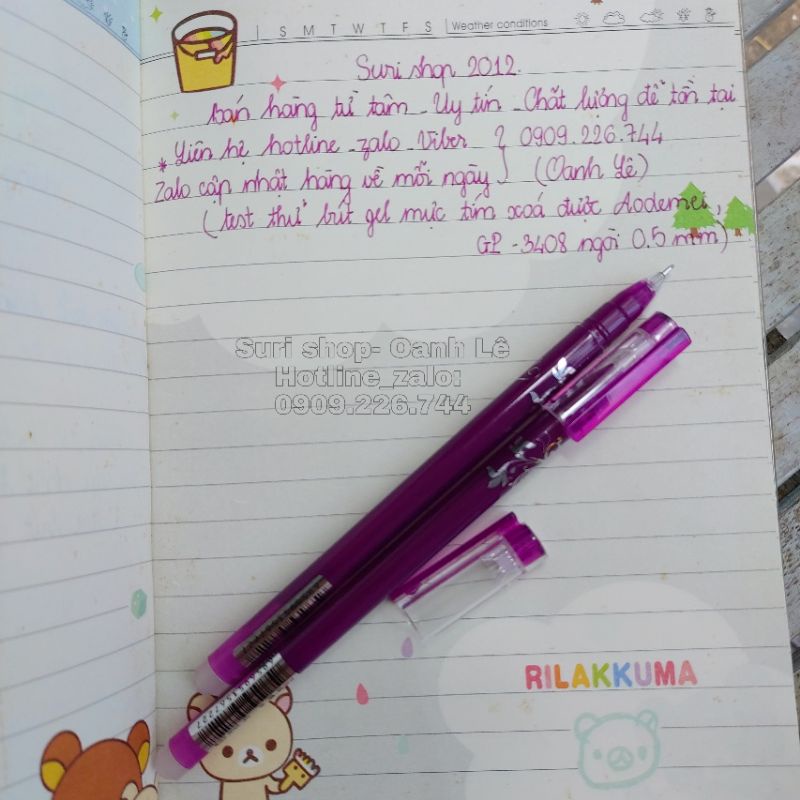 S M T W T F S Weather conditions
Suri shop 2012.
bán hàng từ tâm - Uy tín - Chất lượng để tồn tại
* Liên hệ hotline - zalo - Viber } 0909.226.744
Zalo cập nhật hàng về mỗi ngày } (Oanh Lê)
(test thử bút gel mực tím xoá được Aodemei,
GP - 3408 ngòi 0.5 mm)
Suri shop- Oanh Lê
Hotline_zalo:
0909.226.744
RILAKKUMA